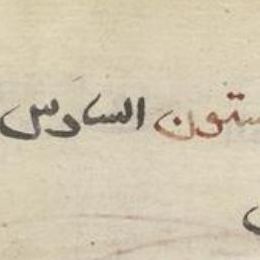 ستون السادس